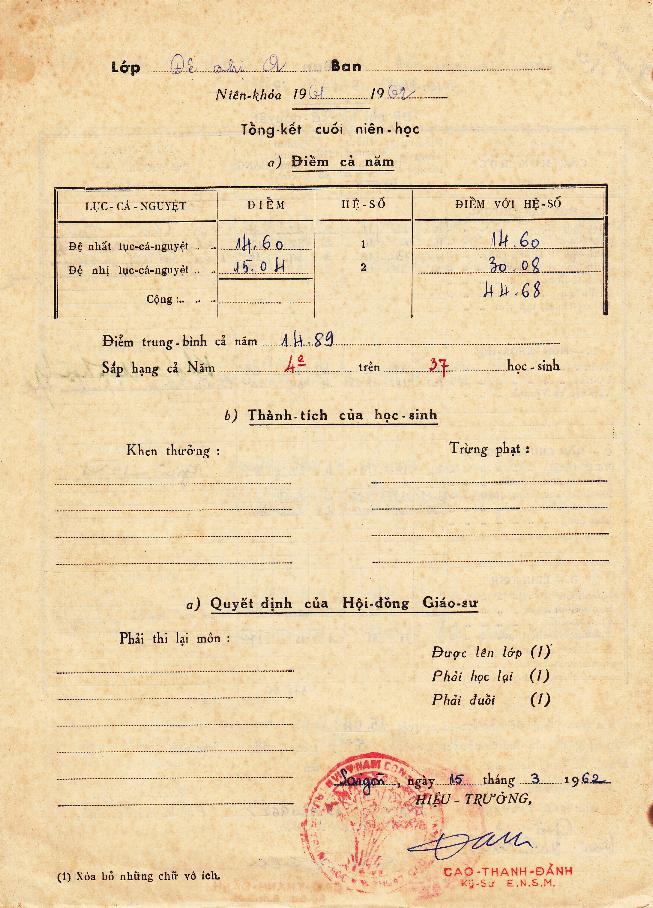 Lớp Đệ nhị A Ban
Niên-khóa 1961 1962
Tổng-kết cuối niên-học
a) Điểm cả năm
LỤC-CÁ-NGUYỆT ĐIỂM HỆ-SỐ ĐIỂM VỚI HỆ-SỐ
Đệ nhất lục-cá-nguyệt .. .. 14.60 1 14.60
Đệ nhị lục-cá-nguyệt .. .. 15.04 2 30.08
Cộng :.. .. .. 44.68
Điểm trung-bình cả năm 14.89
Sắp hạng cả Năm 4e trên 37 học-sinh
b) Thành-tích của học-sinh
Khen thưởng : Trừng phạt :
a) Quyết định của Hội-đồng Giáo-sư
Phải thi lại môn :
Được lên lớp (1)
Phải học lại (1)
Phải đuổi (1)
VIỆT-NAM CỘNG
Saigon, ngày 15 tháng 3 1962
HIỆU-TRƯỞNG,
CAO-THANH-ĐẢNH
Kỹ-Sư E.N.S.M.
(1) Xóa bỏ những chữ vô ích.